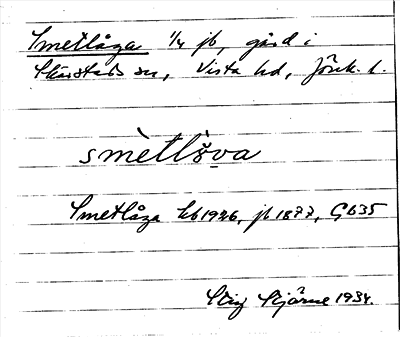 Smetlåga 1/4 jb, gård i
Skärstads sn, Vista hd, Jönk. l.
smètlòva
Smetlåga kb 1926, jb 1877, Gb35
Stig Stjärne 1934.